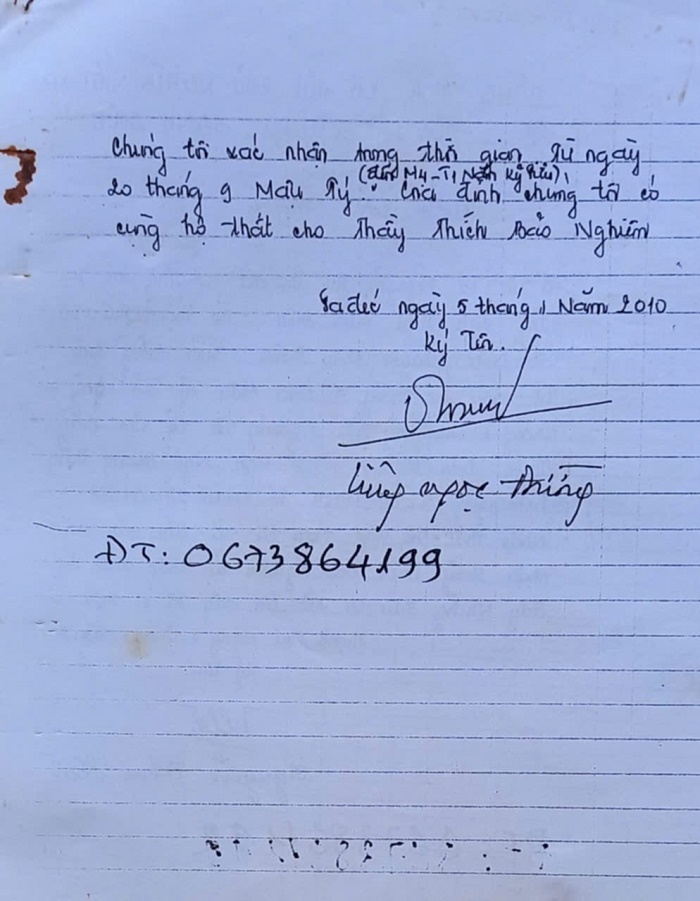 Chúng tôi xác nhận trong thời gian. Từ ngày
(đến M4-T1 Năm Kỷ Sửu),
20 tháng 9 Mậu Tý. Gia đình chúng tôi có
cúng hộ thất cho Thầy Thích Bảo Nghiêm
Sađéc ngày 5 tháng 1 Năm 2010
Ký Tên.
ngọc
ĐT: 0673864199